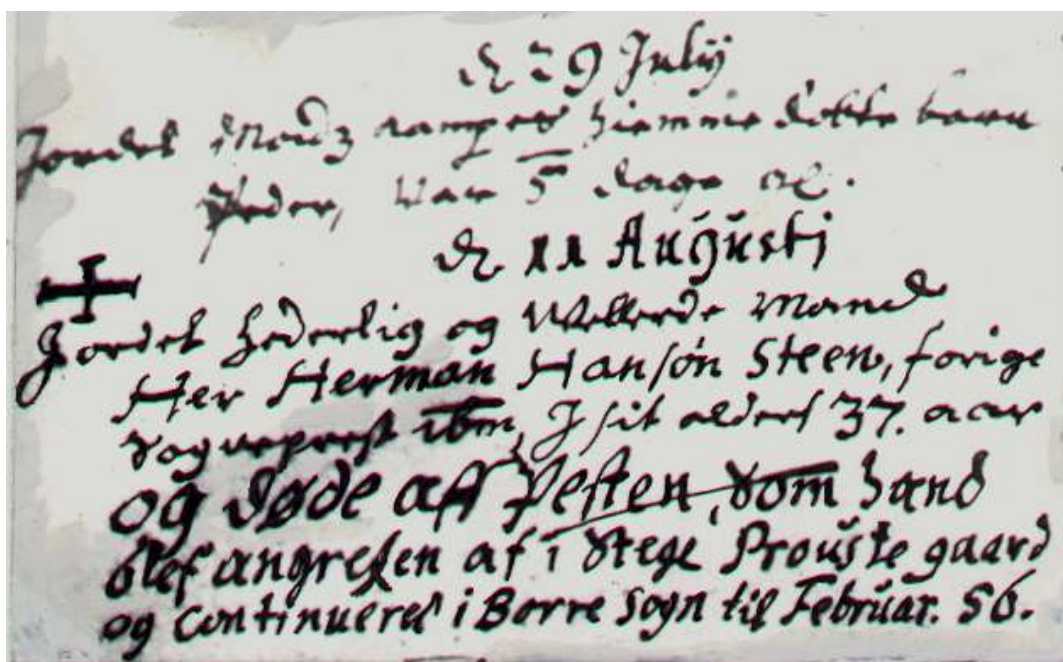 d 29 Julij
Jordet Madz hiemme dotte barn
Peder, war 5 dage al.
d 11 Augusti
Jordet hederlig og Wellerde Mand
Her Herman Hansøn Steen, forige
Sogneprest ibm, I sit alders 37. aar
og døde aff Pesten, som hand
blef angrefen af i Stege Prouste gaard
og continueret i Borre sogn til Februar. 56.